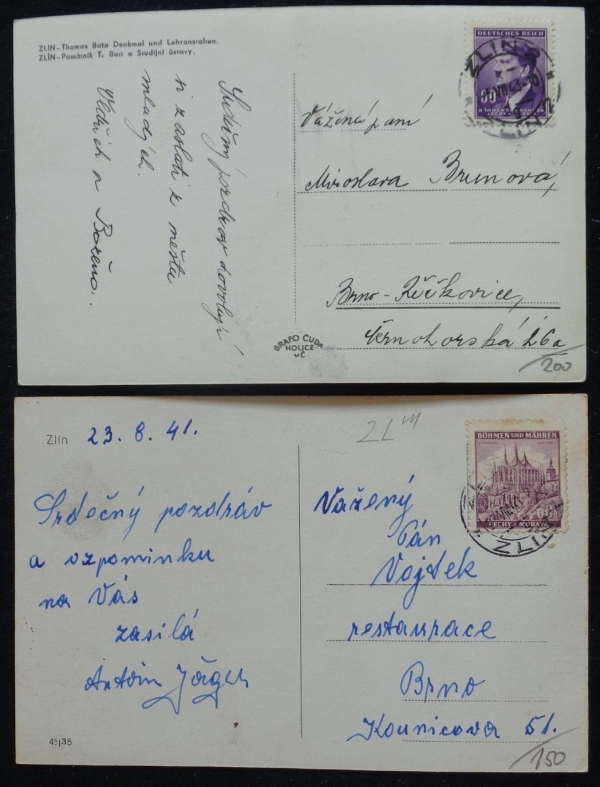 ZLIN-Thomas Bata Denkmal und Lehranstalten.
ZLÍN-Památník T. Bati a Studijní ústavy.
Srdečný pozdrav dovolují
si zaslati z města
mladých.
a Božena.
DEUTSCHES REICH
60
ZLÍN
Vážená paní
Miroslava Brunová,
Brno-Řečkovice,
Černohorská 26a
GRAFO ČUDA
HOLICE
200
Zlín 23. 8. 41.
Srdečný pozdrav
a vzpomínku
na Vás
zasílá
Antonín Jäger
45|35
ZL
BÖHMEN UND MÄHREN
ČECHY A MORAVA
ZLÍN
Vážený
Pán
Vojtek
restaurace
Brno
Kounicova 51.
150